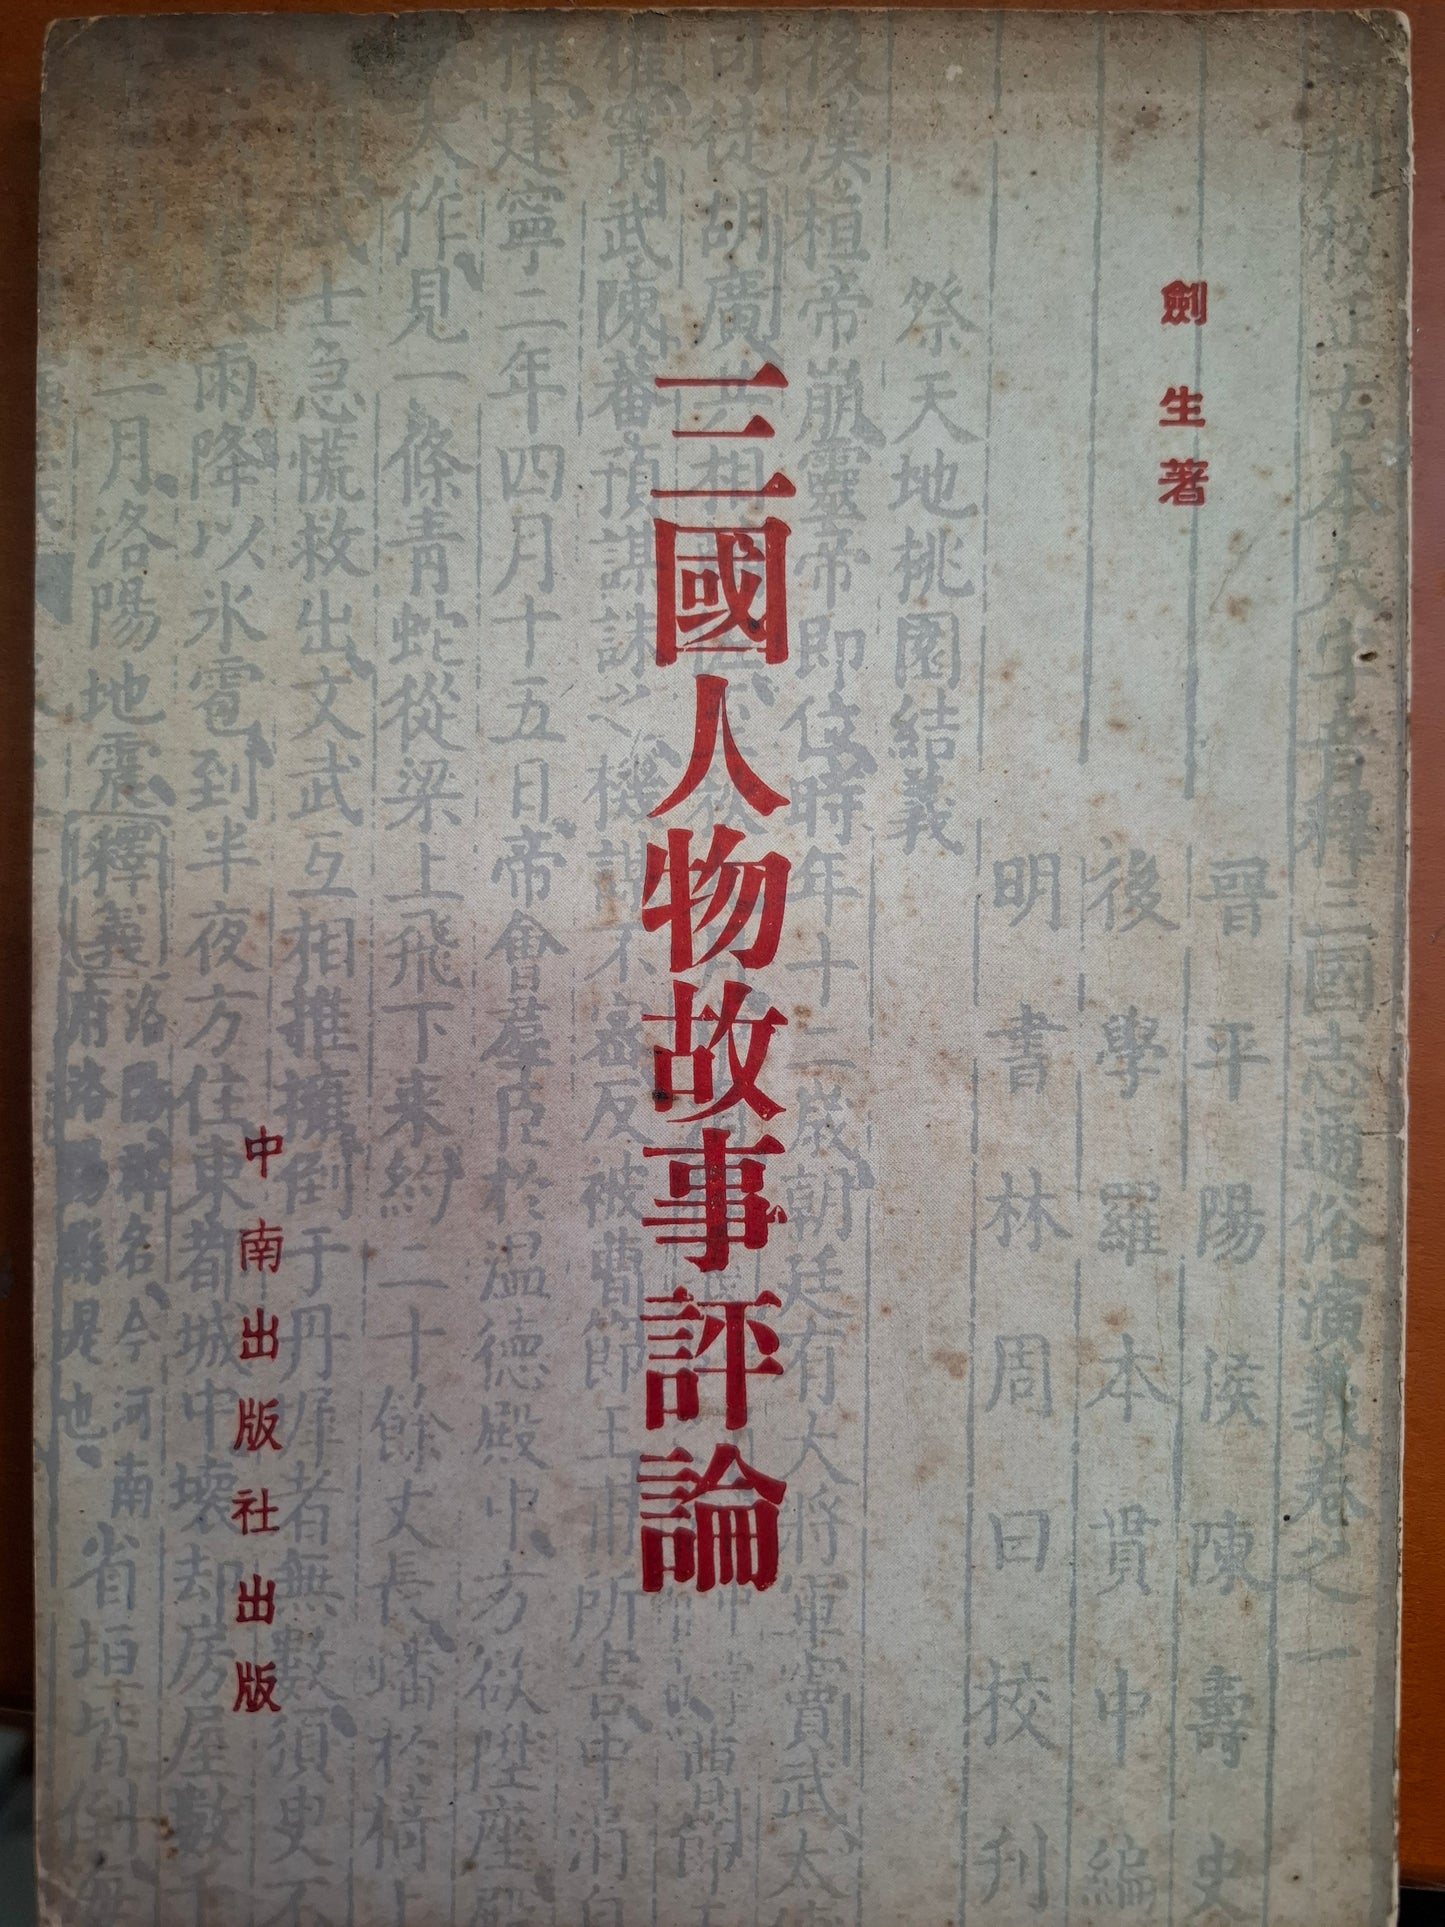 劍生著
三國人物故事評論
中南出版社出版
校正古本大字音釋三國志通俗演義卷之一
晉平陽侯陳壽史
後學羅本貫中編
明書林周曰校刊
祭天地桃園結義
後漢桓帝崩靈帝即位時年十二歲朝廷有大將軍竇武太
司徒胡廣共相
權竇武陳蕃預謀誅之機謀不密反被曹節王甫所害中涓自
建寧二年四月十五日帝會羣臣於溫德殿中方欲陞座殿
大作見一條青蛇從梁上飛下来約二十餘丈長蟠於椅上
武士急慌救出文武互相推擁倒于丹墀者無數須臾不
雨降以氷雹到半夜方住東都城中壞却房屋數千
二月洛陽地震釋義洛陽郡名今河南府洛陽縣是也省垣皆倒